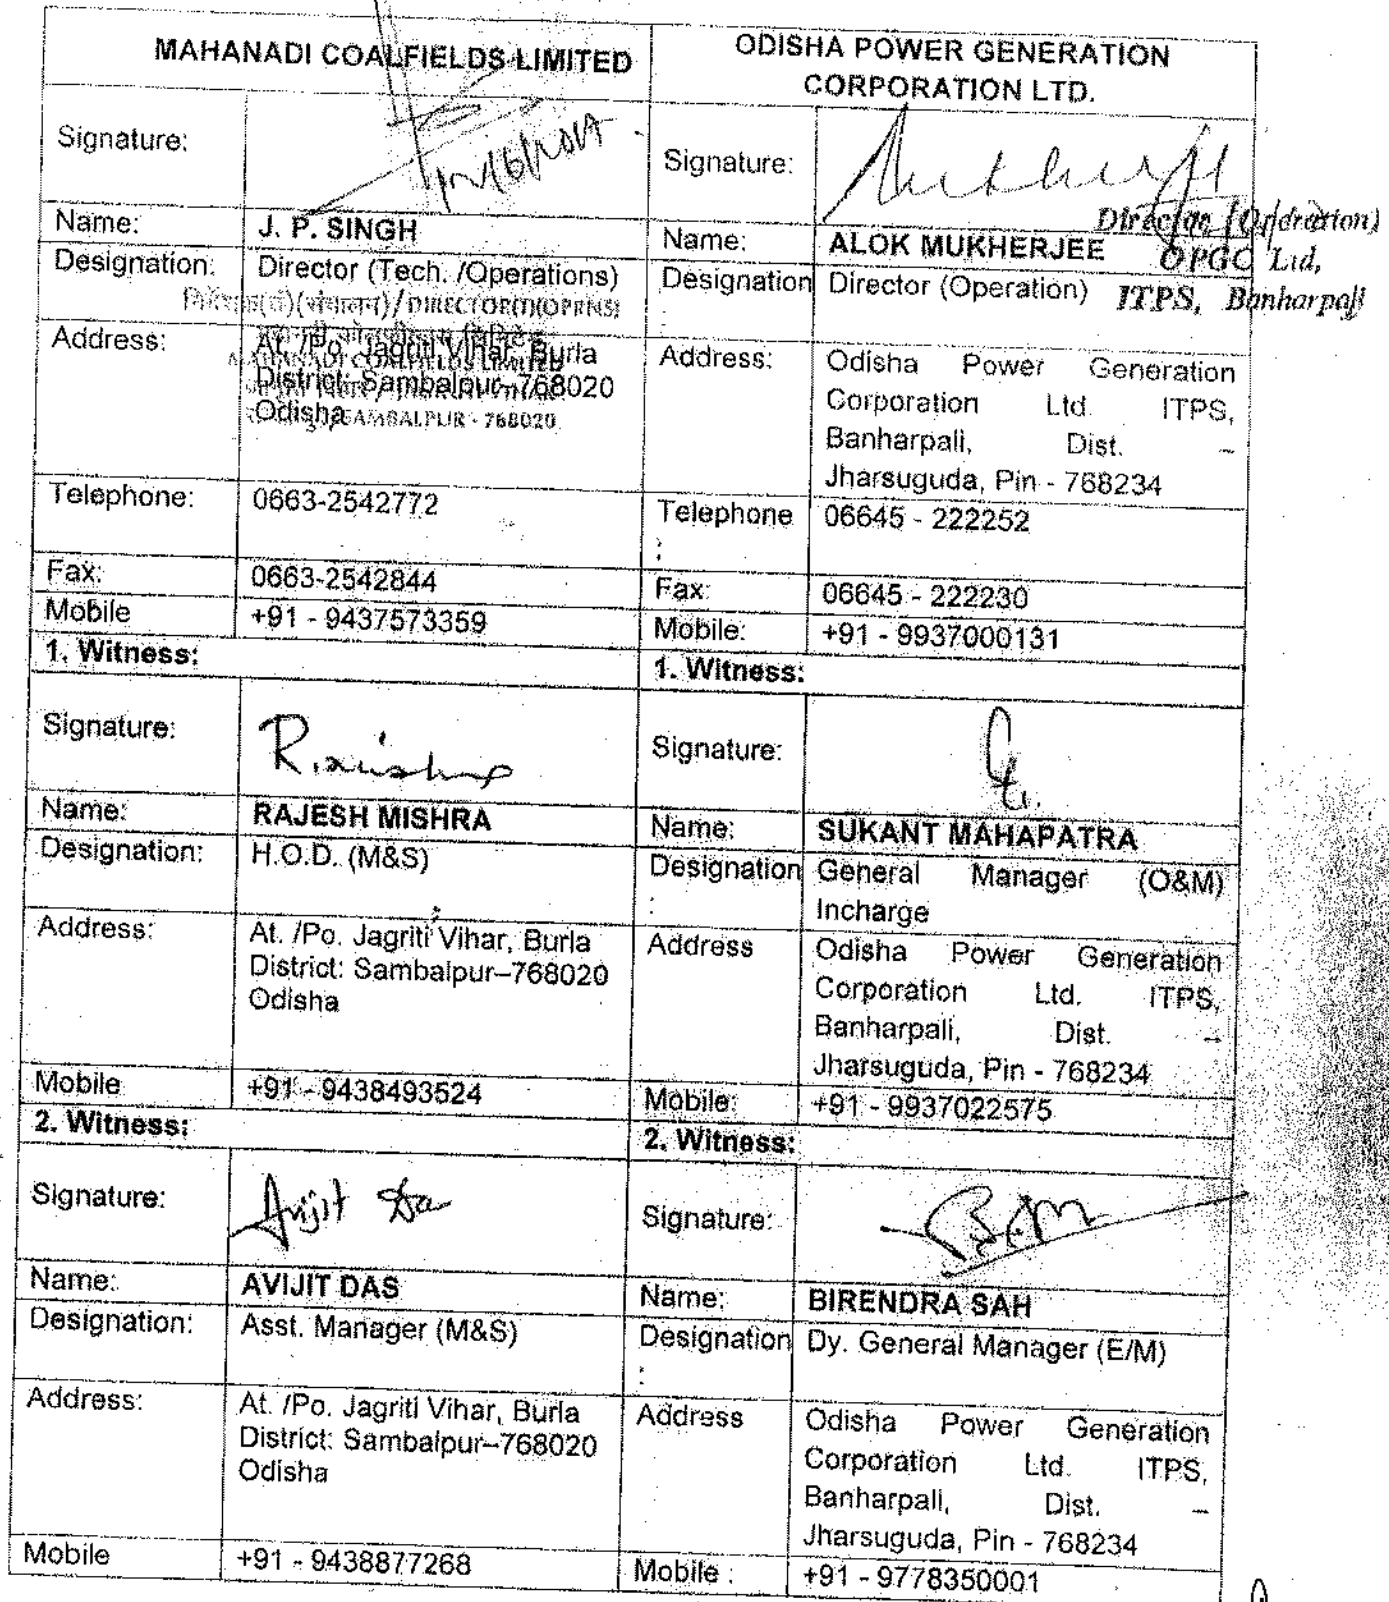 MAHANADI COALFIELDS LIMITED
ODISHA POWER GENERATION
CORPORATION LTD.
Signature:
Signature:
Name:
J. P. SINGH
Name:
ALOK MUKHERJEE
Director (Operation)
OPGC Ltd,
ITPS, Banharpali
Designation:
Director (Tech. /Operations)
Designation
:
Director (Operation)
निदेशक(त)(संचालन)/DIRECTOR(T)(OPRNS)
MAHANADI COALFIELDS LIMITED
SAMBALPUR - 768020
Address:
At. /Po. Jagriti Vihar, Burla
District: Sambalpur–768020
Odisha
Address:
Odisha Power Generation
Corporation Ltd. ITPS,
Banharpali, Dist. –
Jharsuguda, Pin - 768234
Telephone:
0663-2542772
Telephone
:
06645 - 222252
Fax:
0663-2542844
Fax:
06645 - 222230
Mobile
+91 - 9437573359
Mobile:
+91 - 9937000131
1. Witness:
1. Witness:
Signature:
Signature:
Name:
RAJESH MISHRA
Name:
SUKANT MAHAPATRA
Designation:
H.O.D. (M&S)
Designation
:
General Manager (O&M)
Incharge
Address:
At. /Po. Jagriti Vihar, Burla
District: Sambalpur–768020
Odisha
Address
Odisha Power Generation
Corporation Ltd. ITPS,
Banharpali, Dist. –
Jharsuguda, Pin - 768234
Mobile
+91 - 9438493524
Mobile:
+91 - 9937022575
2. Witness:
2. Witness:
Signature:
Avijit Das
Signature:
Name:
AVIJIT DAS
Name:
BIRENDRA SAH
Designation:
Asst. Manager (M&S)
Designation
:
Dy. General Manager (E/M)
Address:
At. /Po. Jagriti Vihar, Burla
District: Sambalpur–768020
Odisha
Address
Odisha Power Generation
Corporation Ltd. ITPS,
Banharpali, Dist. –
Jharsuguda, Pin - 768234
Mobile
+91 - 9438877268
Mobile :
+91 - 9778350001